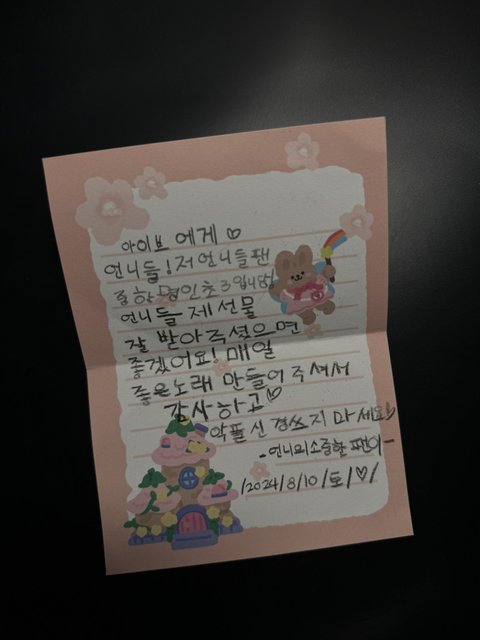 아이브 에게 ♡
언니들! 저 언니들 팬
중 한 명인 초3입니당
언니들 제 선물
잘 받아주셨으면
좋겠어요! 매일
좋은노래 만들어 주셔서
감사하고♡
악플 신경쓰지 마세요!
-언니의 소중한 팬이-
/2024/8/10/토/♡/